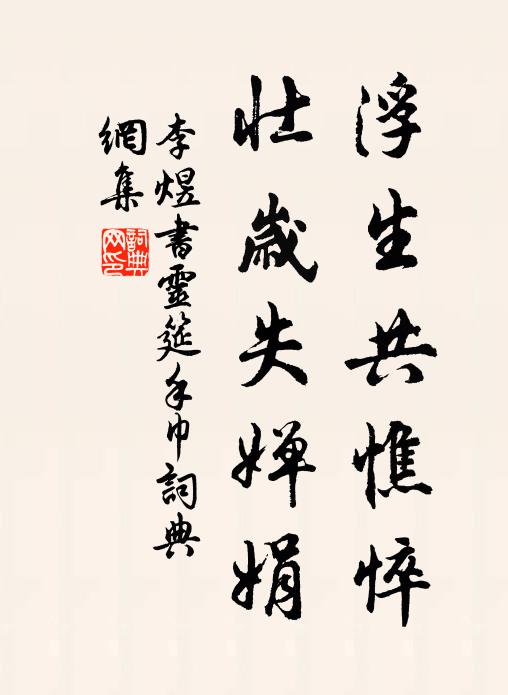 浮生共憔悴
壮歲失嬋娟
李煜書靈筵手巾詞典
網集
詞典
网印